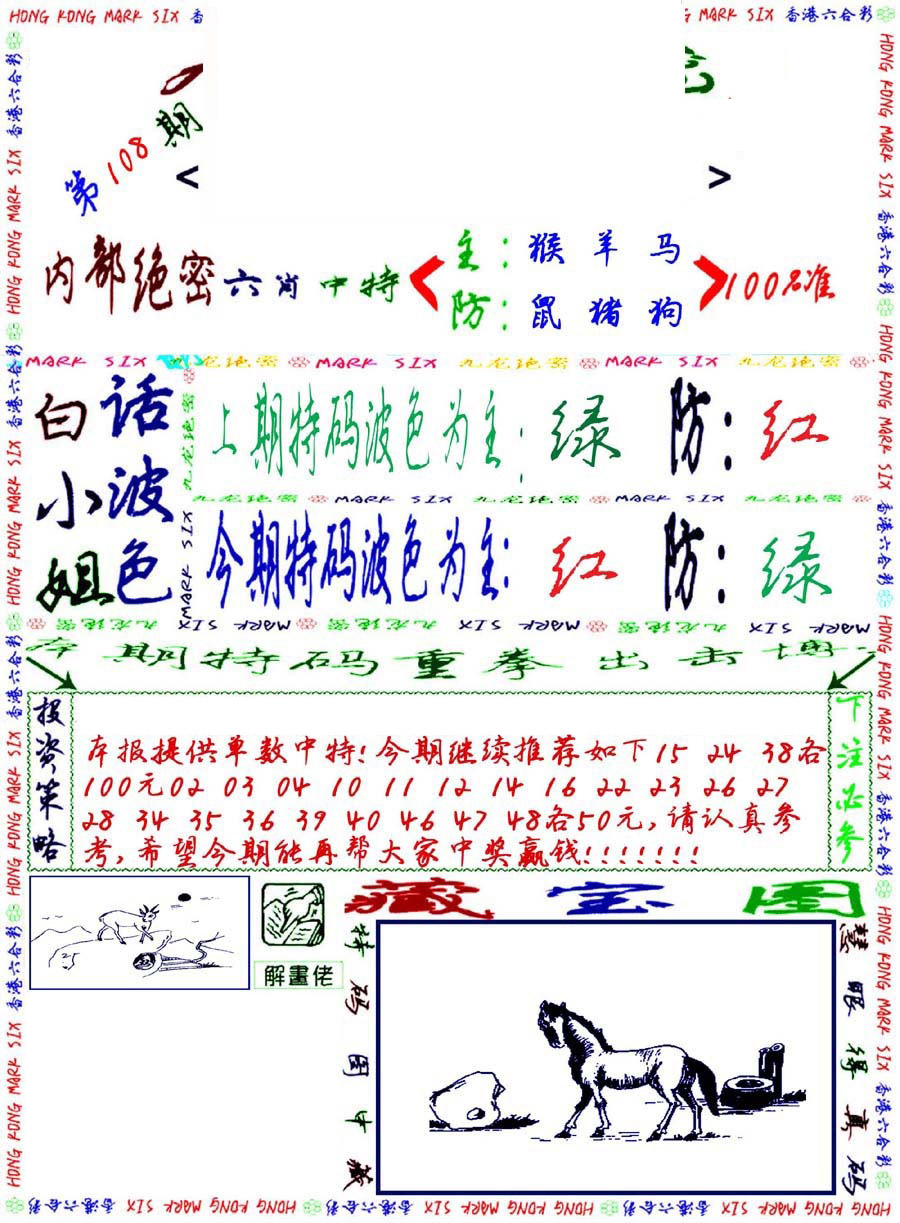 HONG KONG MARK SIX 香
G MARK SIX 香港六合彩
第108期
< >
内部绝密六肖中特
主：猴 羊 马
防：鼠 猪 狗
100%准
MARK SIX 九龙绝密 MARK SIX 九龙绝密 MARK SIX 九龙绝密
白话
小波
姐色
上期特码波色为主：绿 防：红
九龙绝密 MARK SIX 九龙绝密 MARK SIX 九龙绝密
今期特码波色为主：红 防：绿
九龙绝密 MARK SIX 九龙绝密 MARK SIX 九龙绝密 MARK SIX
期特码重拳出击
投资策略
本报提供单数中特!今期继续推荐如下15 24 38各
100元02 03 04 10 11 12 14 16 22 23 26 27
28 34 35 36 39 40 46 47 48各50元,请认真参
考,希望今期能再帮大家中奖赢钱!!!!!!!
下注必参
解畫佬
藏宝图
特码图中藏
慧眼得真码
HONG KONG MARK SIX 香港六合彩
HONG KONG MARK SIX 香港六合彩
HONG KONG MARK SIX 香港六合彩